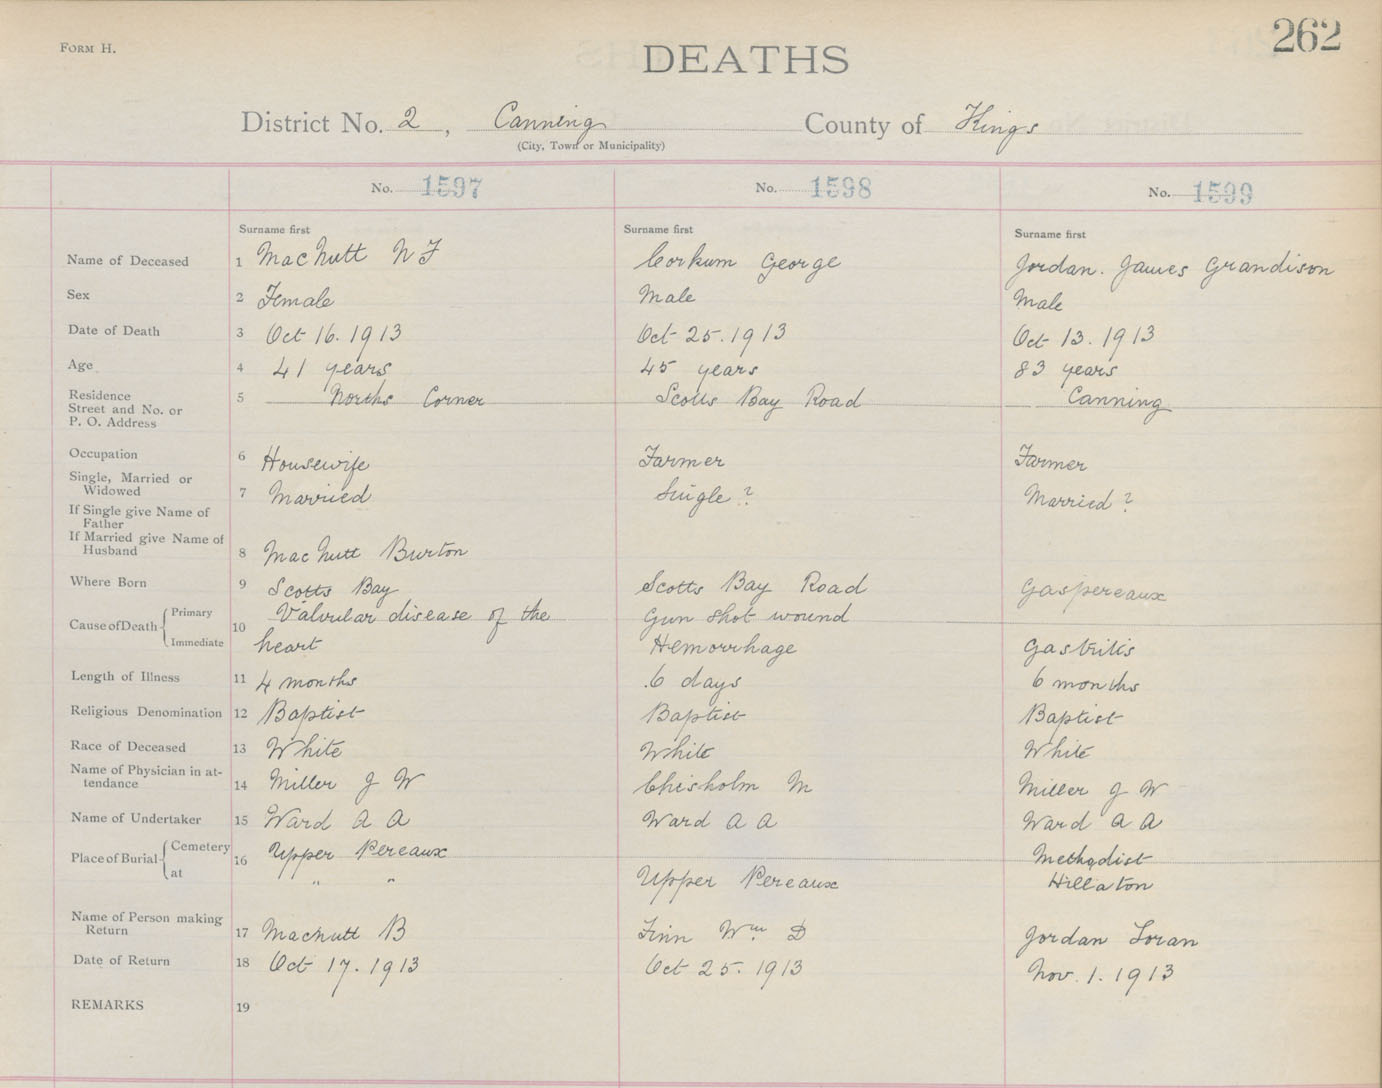 262
FORM H.
DEATHS
District No. 2, Canning County of Kings
(City, Town or Municipality)
No. 1597 No. 1598 No. 1599
Surname first Surname first Surname first
Name of Deceased 1 MacNutt N F Corkum George Jordan. James Grandison
Sex 2 Female Male Male
Date of Death 3 Oct 16. 1913 Oct 25. 1913 Oct 13. 1913
Age 4 41 years 45 years 83 years
Residence Street and No. or P. O. Address 5 Norths Corner Scotts Bay Road Canning
Occupation 6 Housewife Farmer Farmer
Single, Married or Widowed 7 Married Single ? Married ?
If Single give Name of Father
If Married give Name of Husband 8 MacNutt Burton
Where Born 9 Scotts Bay Scotts Bay Road Gaspereaux
Cause of Death Primary 10 Valvular disease of the Gun shot wound
Immediate heart Hemorrhage Gastritis
Length of Illness 11 4 months 6 days 6 months
Religious Denomination 12 Baptist Baptist Baptist
Race of Deceased 13 White White White
Name of Physician in attendance 14 Miller J W Chisholm M Miller J W
Name of Undertaker 15 Ward A A Ward A A Ward A A
Place of Burial Cemetery 16 Upper Pereaux Methodist
at " " Upper Pereaux Hillaton
Name of Person making Return 17 Macnutt B Finn Wm D Jordan Loran
Date of Return 18 Oct 17. 1913 Oct 25. 1913 Nov. 1. 1913
REMARKS 19